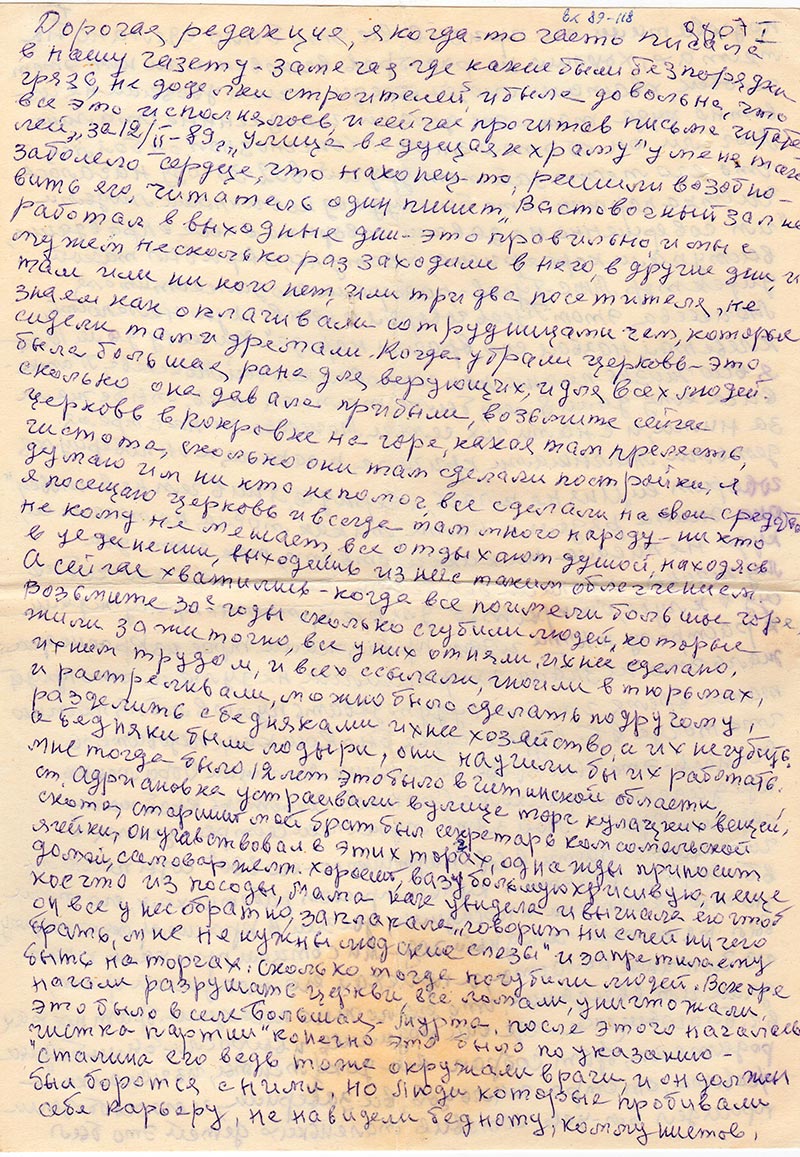 вх 89-118
Дорогая редакция, я когда-то часто писала
в нашу газету - замечая где какие были безпорядки
грязь, не доделки строителей, и была довольна, что
все это исполнялось, и сейчас прочитав письма читате
лей, за 12/II-89г. "Улица ведущая к храму" у меня
заболело сердце, что наконец-то, решили возобно-
вить его, читатель один пишет, "Выстовочный зал не
работал в выходные дни - это провильно, и мы с
мужем несколько раз заходили в него, в другие дни, и
там или ни кого нет, или три два посетителя, не
знаем как оплачивали сотрудницам и чем, которые
сидели там и дремали. Когда убрали церковь - это
была большая рана для верующих, и для всех людей.
сколько она давала прибыли, возьмите сейчас
церковь в Покровке на горе, какая там прелесть,
чистота, сколько они там сделали постройки, я
думаю им ни кто непомог, все сделали на свои средства
я посещаю церковь и всегда там много народу - ни кто
не кому не мешает, все отдыхают душой, находясь
в уединении, выходишь из нее с таким облегчением.
А сейчас хватились - когда все поимели большые горе,
Возьмите 30е годы сколько сгубили людей, которые
жили зажиточно, все у них отняли, ихнее сделано,
ихним трудом, и всех ссылали, гноили в тюрьмах,
и растреливали, можно было сделать подругому,
разделить с бедняками ихнее хозяйство, а их негубить.
а бедняки были лодыри, они научили бы их работать.
мне тогда было 12 лет это было в читинской области,
ст. Адриановка устраивали в улице торг кулацких вещей,
скота, старший мой брат был секретарь комсомольской
ячейки, он учавствовал в этих торгах, однажды приносит
домой, самовар желт. хороший, вазу большую красивую, и еще
кое что из посоды, Мама как увидела и вычиала его чтоб
он все унес обратно, заплакала, "говорит ни смей ничего
брать, мне не нужны людские слезы" и запретила ему
быть на торгах. Сколько тогда погубили людей. Вскоре
начали разрушать церкви все ломали, уничтожали,
это было в селе Большая-Мурта. после этого началась
"чистка партии" конечно это было по указанию -
"Сталина его ведь тоже окружали врачи, и он должен
был боротся с ними, но люди которые пробивали
себе карьеру, не навидели бедноту, коммунистов,